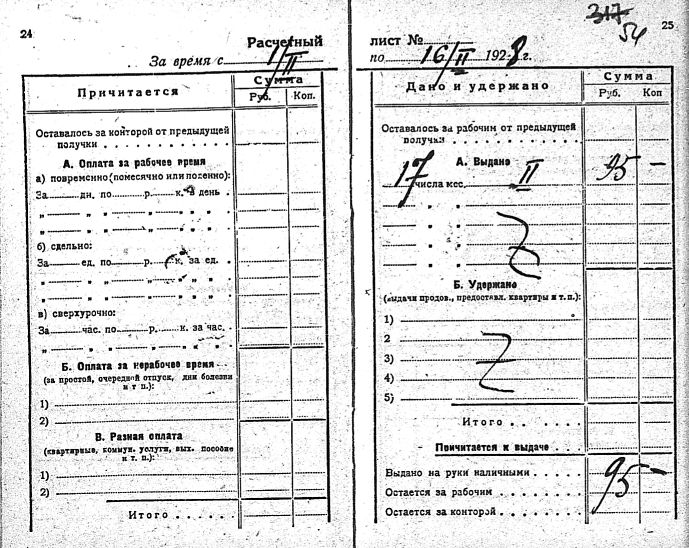 24
Расчетный
За время с 1/II
Причитается
Сумма
Руб. Коп.
Оставалось за конторой от предыдущей
получки
А. Оплата за рабочее время
а) повременно (помесячно или поденно):
За дн. по р. к. в день
„ „ „ „ „ „
„ „ „ „ „ „
б) сдельно:
За ед. по р. к. за ед.
„ „ „ „ „ „
„ „ „ „ „ „
в) сверхурочно:
За час. по р. к. за час.
„ „ „ „ „ „
Б. Оплата за нерабочее время
(за простой, очередной отпуск, дни болезни
и т п.):
1)
2)
В. Разная оплата
(квартирные, коммун. услуги, вых. пособие
и т. п.):
1)
2)
Итого
317
54
25
лист №
по 16/II 1928 г.
Дано и удержано
Сумма
Руб. Коп
Оставалось за рабочим от предыдущей
получки
А. Выдано
17 числа мес. II 95 —
„ „
„ „
„ „
„ „
Б. Удержано
(выдачи продов., предоставл. квартиры и т. п.):
1)
2
3)
4)
5)
Итого
Причитается к выдаче
Выдано на руки наличными 95 —
Остается за рабочим
Остается за конторой